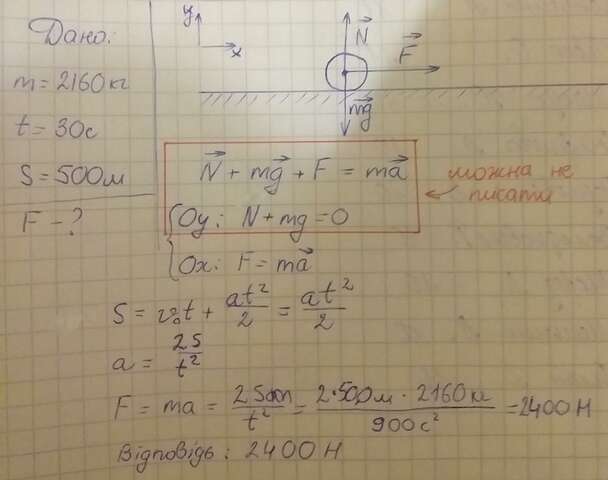 Дано:
m = 2160 кг
t = 30 с
S = 500 м
F - ?
y
x
N⃗
F⃗
mg⃗
N⃗ + mg⃗ + F = ma⃗
можна не
писати
Oy: N + mg = 0
Ox: F = ma⃗
S = v₀t + at²/2 = at²/2
a = 2S/t²
F = ma = 2Sm/t² = 2·500м · 2160кг/900с² = 2400 Н
Відповідь: 2400 Н